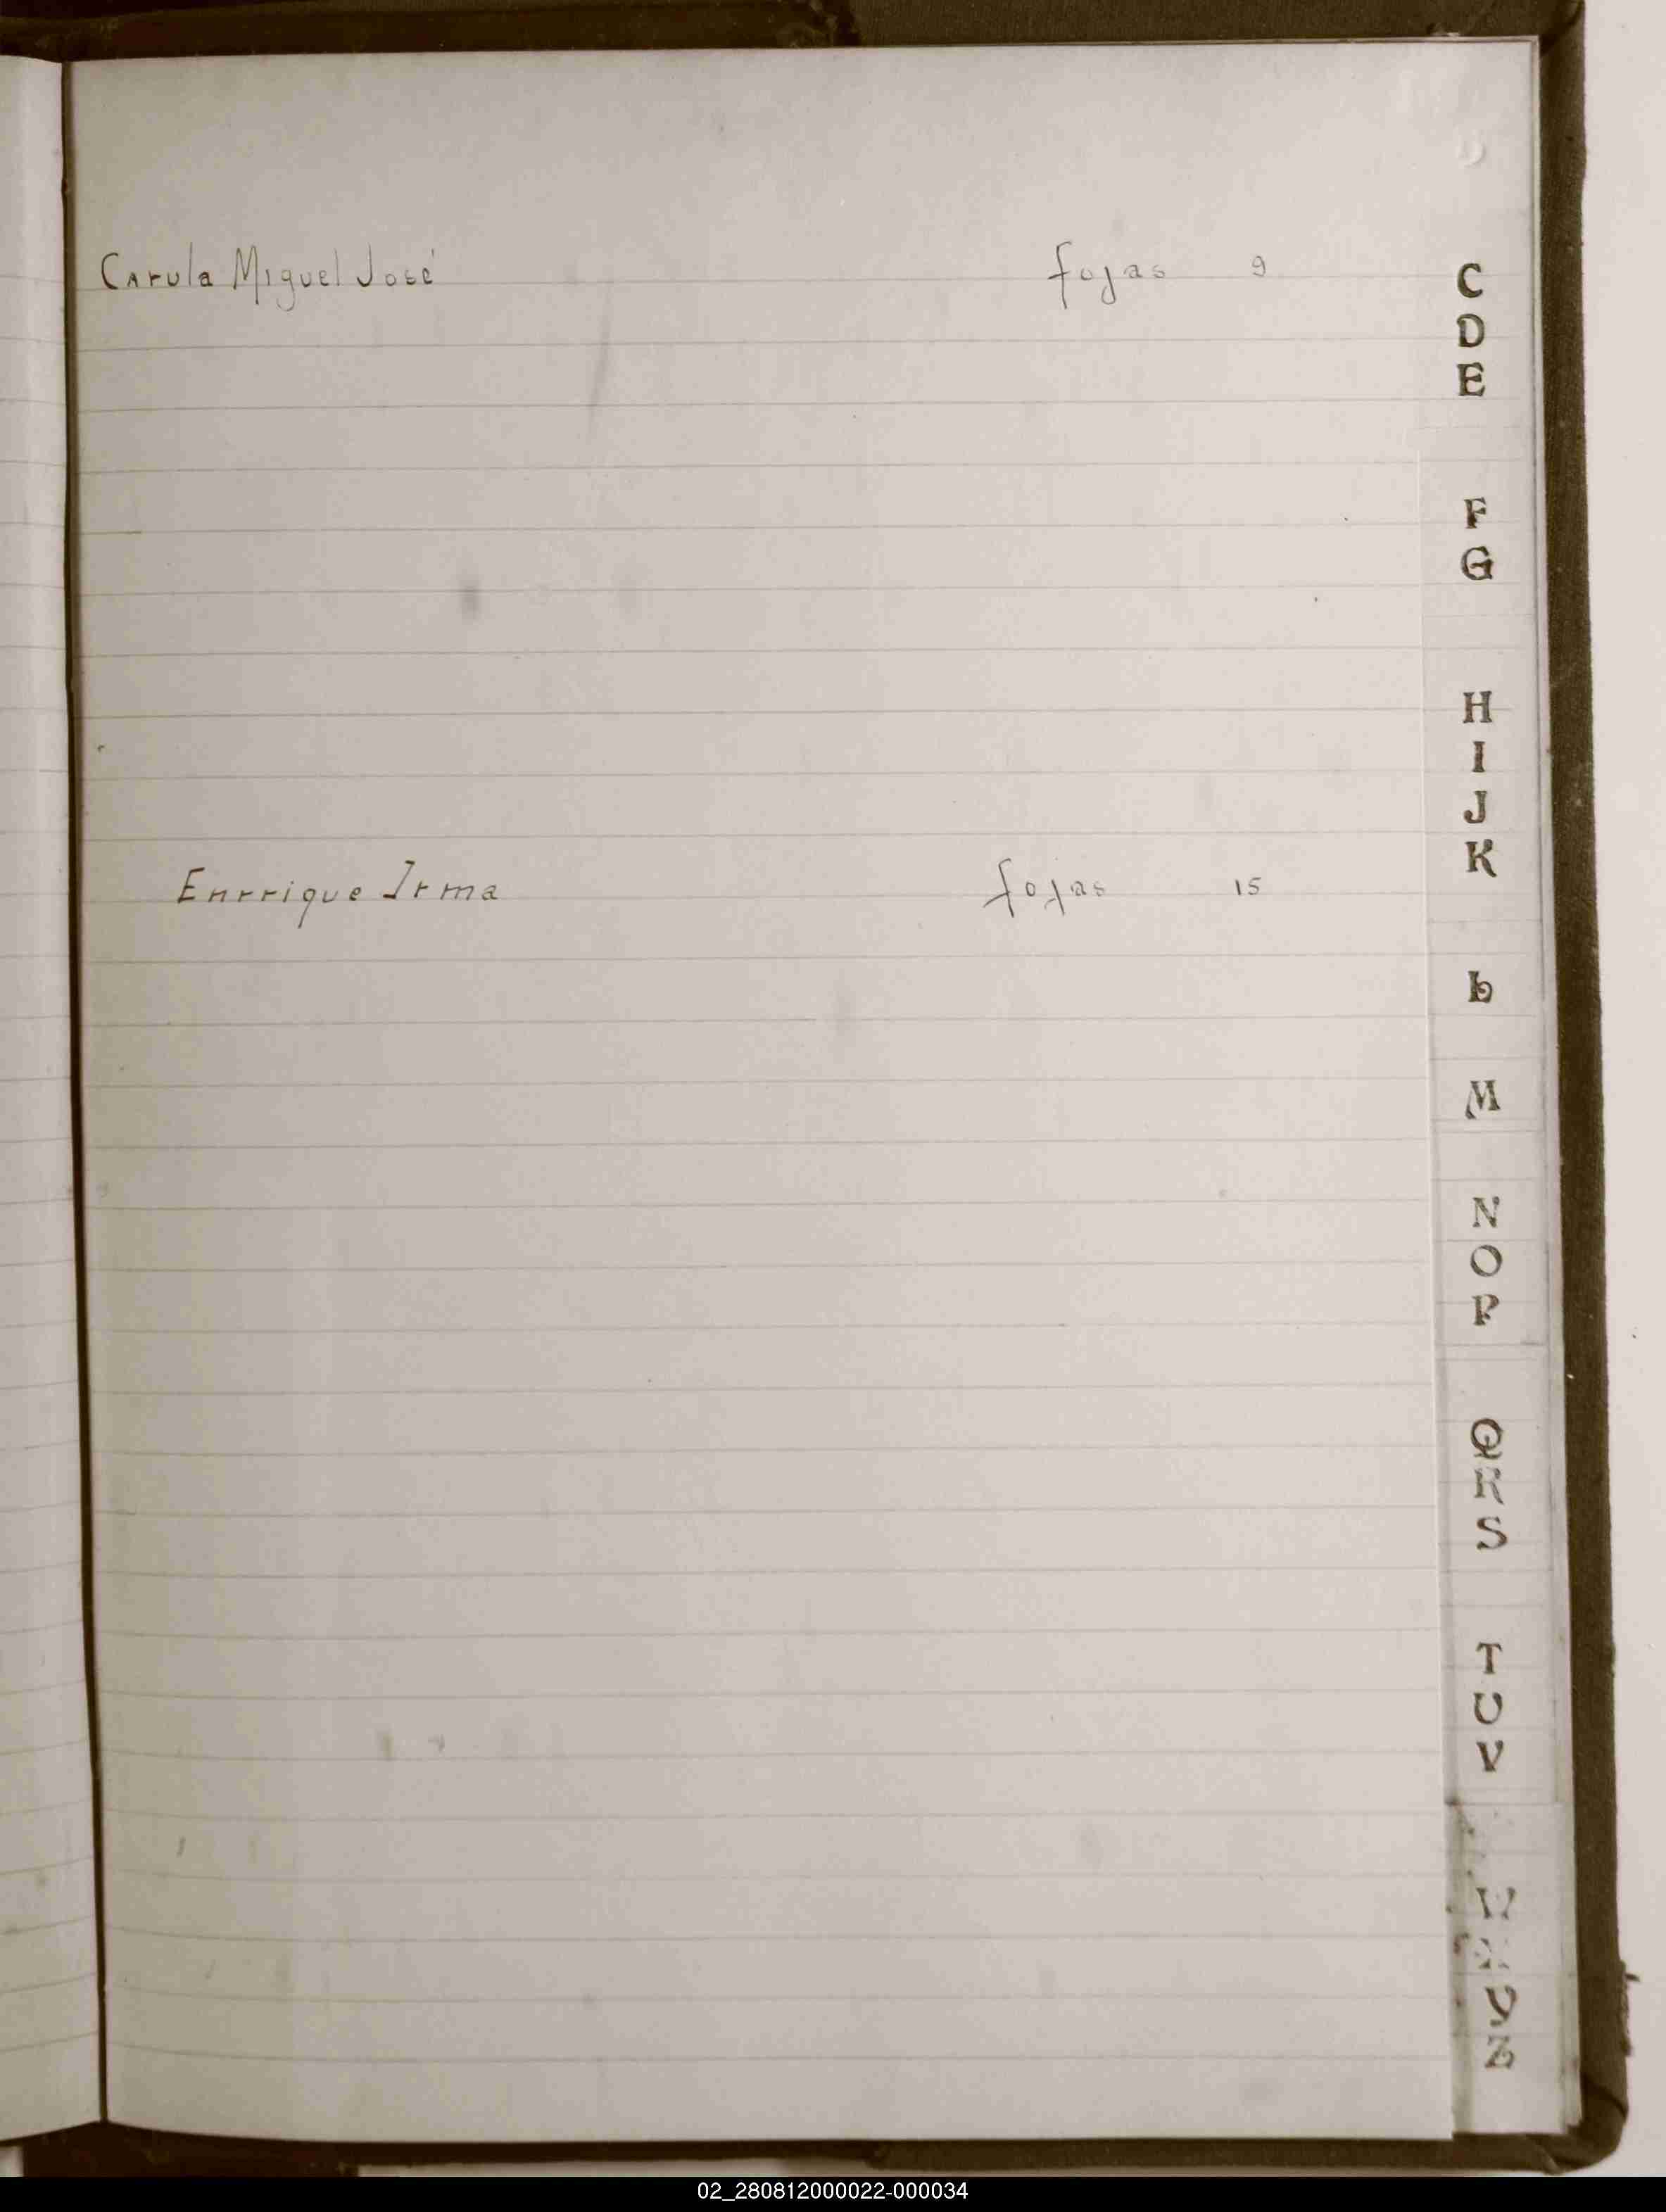 Carula Miguel José fojas 9
C
D
E
F
G
H
I
J
K
Enrrique Irma fojas 15
L
M
N
O
P
Q
R
S
T
U
V
W
X
Y
Z
02_280812000022-000034